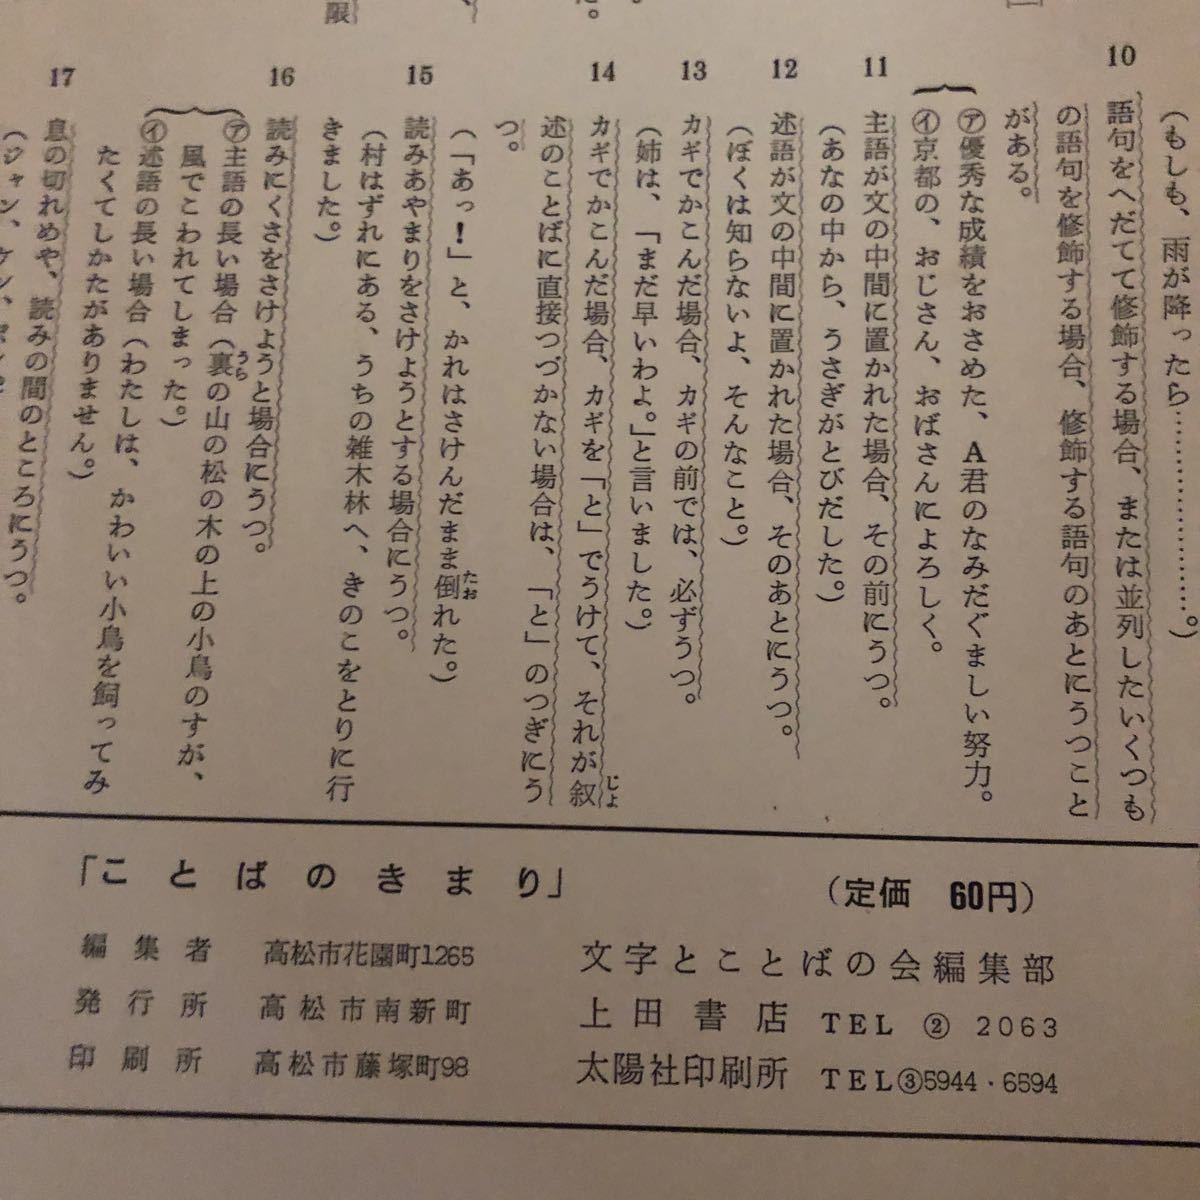 （もしも、雨が降ったら…………………。）
10 語句をへだてて修飾する場合、または並列したいくつも
の語句を修飾する場合、修飾する語句のあとにうつこと
がある。
㋐優秀な成績をおさめた、A君のなみだぐましい努力。
㋑京都の、おじさん、おばさんによろしく。
11 主語が文の中間に置かれた場合、その前にうつ。
（あなの中から、うさぎがとびだした。）
12 述語が文の中間に置かれた場合、そのあとにうつ。
（ぼくは知らないよ、そんなこと。）
13 カギでかこんだ場合、カギの前では、必ずうつ。
（姉は、「まだ早いわよ。」と言いました。）
14 カギでかこんだ場合、カギを「と」でうけて、それが叙じょ
述のことばに直接つづかない場合は、「と」のつぎにう
つ。
（「あっ！」と、かれはさけんだまま倒たおれた。）
15 読みあやまりをさけようとする場合にうつ。
（村はずれにある、うちの雑木林へ、きのこをとりに行
きました。）
16 読みにくさをさけようと場合にうつ。
㋐主語の長い場合（裏うらの山の松の木の上の小鳥のすが、
風でこわれてしまった。）
㋑述語の長い場合（わたしは、かわいい小鳥を飼ってみ
たくてしかたがありません。）
17 息の切れめや、読みの間のところにうつ。
（ジャン、ケン、ポン
「ことばのきまり」 （定価 60円）
編集者 高松市花園町1265 文字とことばの会編集部
発行所 高松市南新町 上田書店 TEL ② 2063
印刷所 高松市藤塚町98 太陽社印刷所 TEL③5944・6594